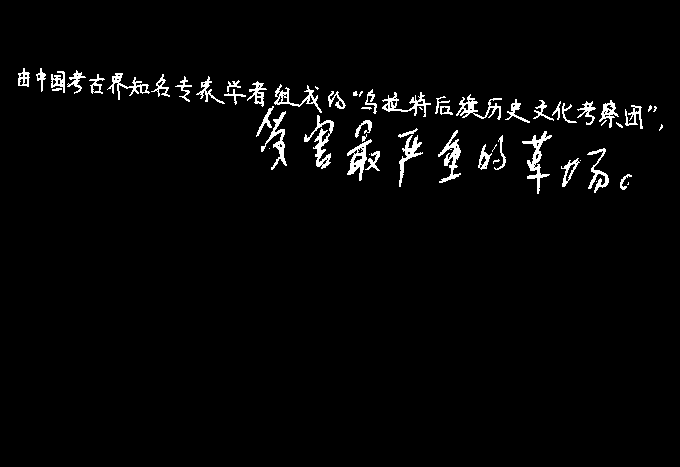 由中国考古界知名专家学者组成的“乌拉特后旗历史文化考察团”,
受害最严重的草场。